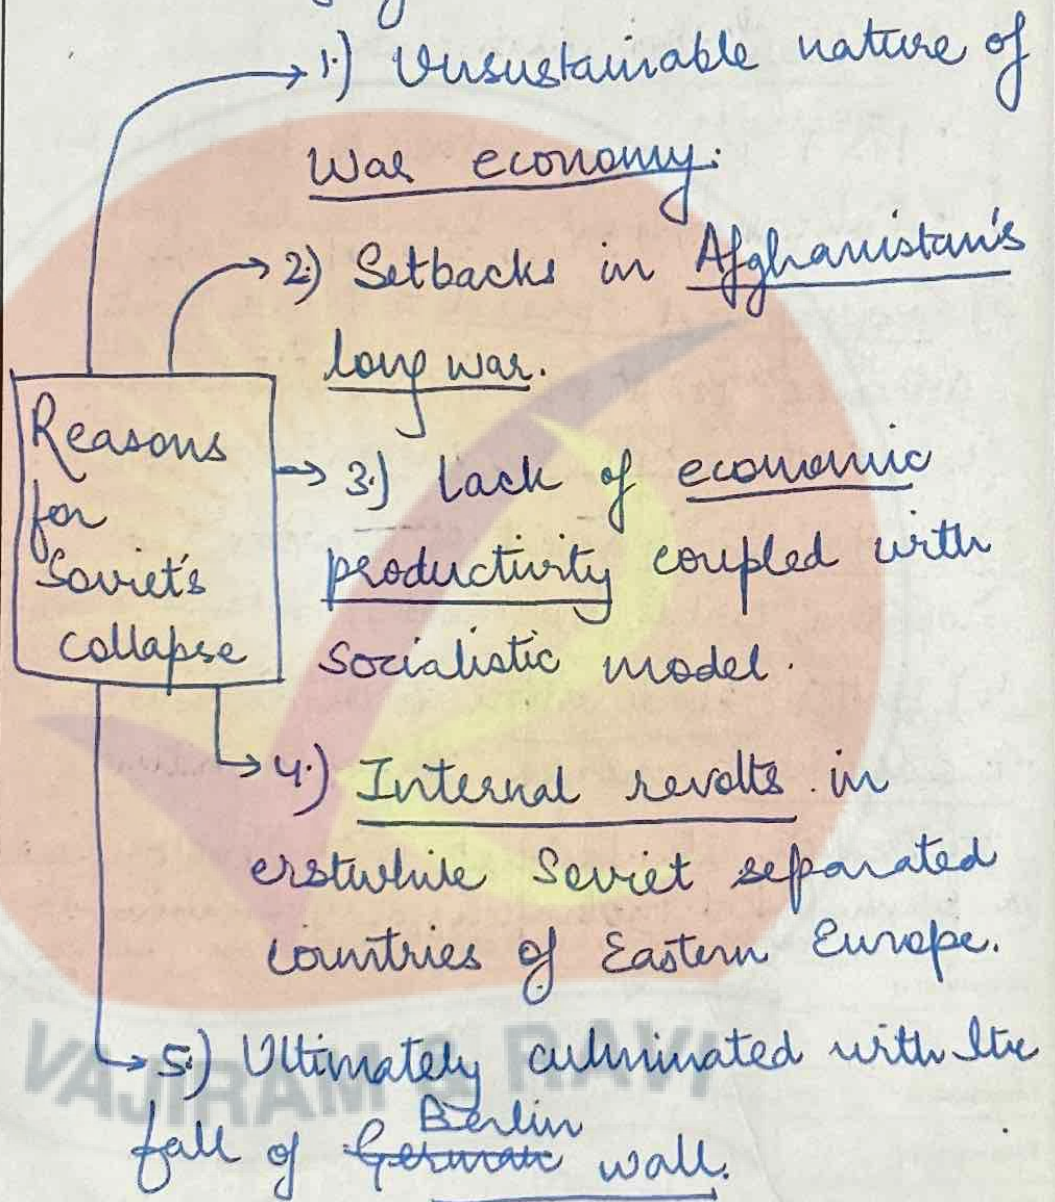 1.) Unsustainable nature of
War economy.
2.) Setbacks in Afghanistan's
long war.
Reasons
for
Soviet's
collapse
3.) Lack of economic
productivity coupled with
socialistic model.
4.) Internal revolts in
erstwhile Soviet separated
countries of Eastern Europe.
5.) Ultimately culminated with the
fall of German Berlin wall.
VAJIRAM & RAVI